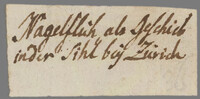 Nagelfluh, als Geschieb
in der Sihl bey Zürich